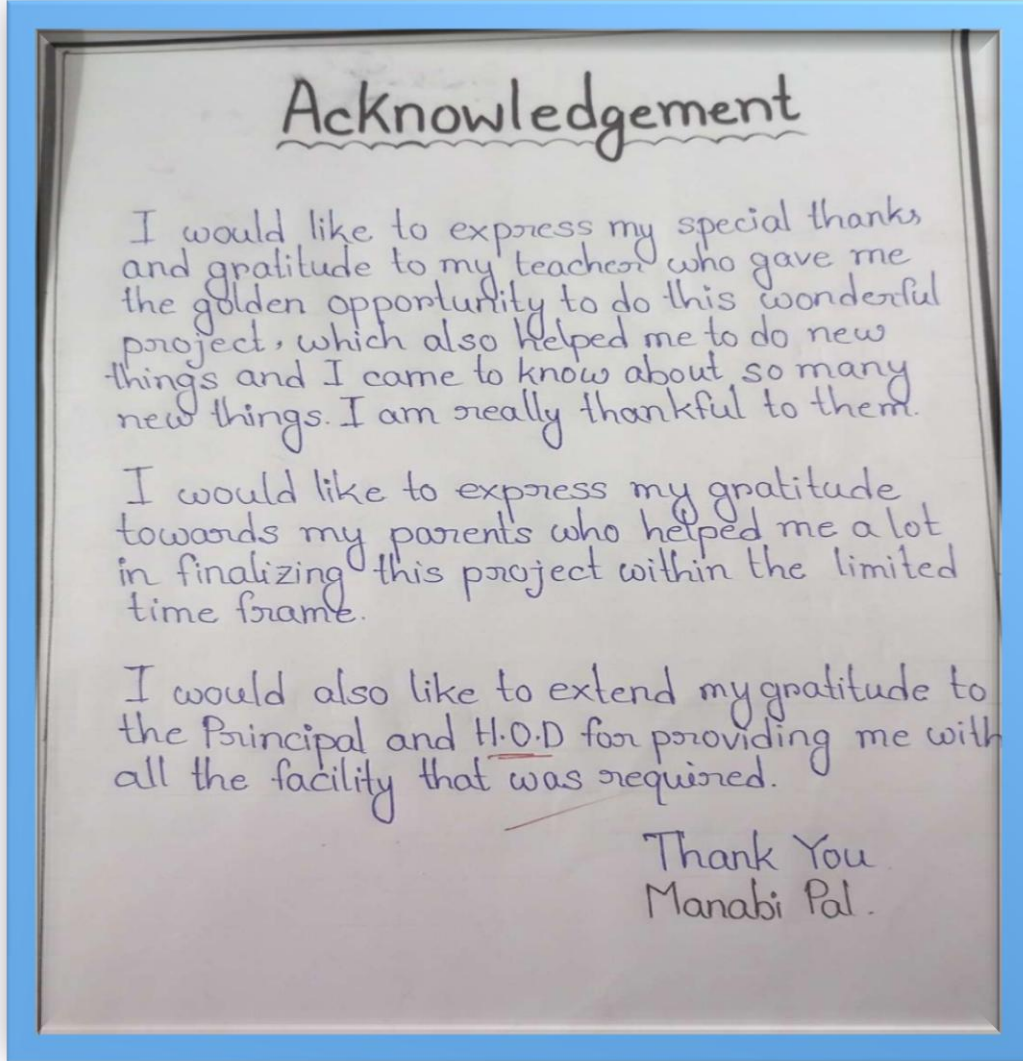 Acknowledgement
I would like to express my special thanks
and gratitude to my teacher who gave me
the golden opportunity to do this wonderful
project, which also helped me to do new
things and I came to know about so many
new things. I am really thankful to them.
I would like to express my gratitude
towards my parents who helped me a lot
in finalizing this project within the limited
time frame.
I would also like to extend my gratitude to
the Principal and H.O.D for providing me with
all the facility that was required.
Thank You
Manabi Pal.